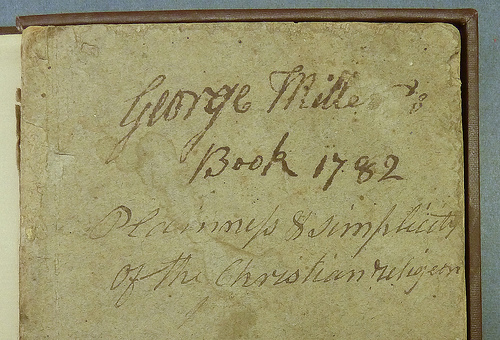 George Miller's
Book 1782
Plainneſs & simplicity
of the Christian religion